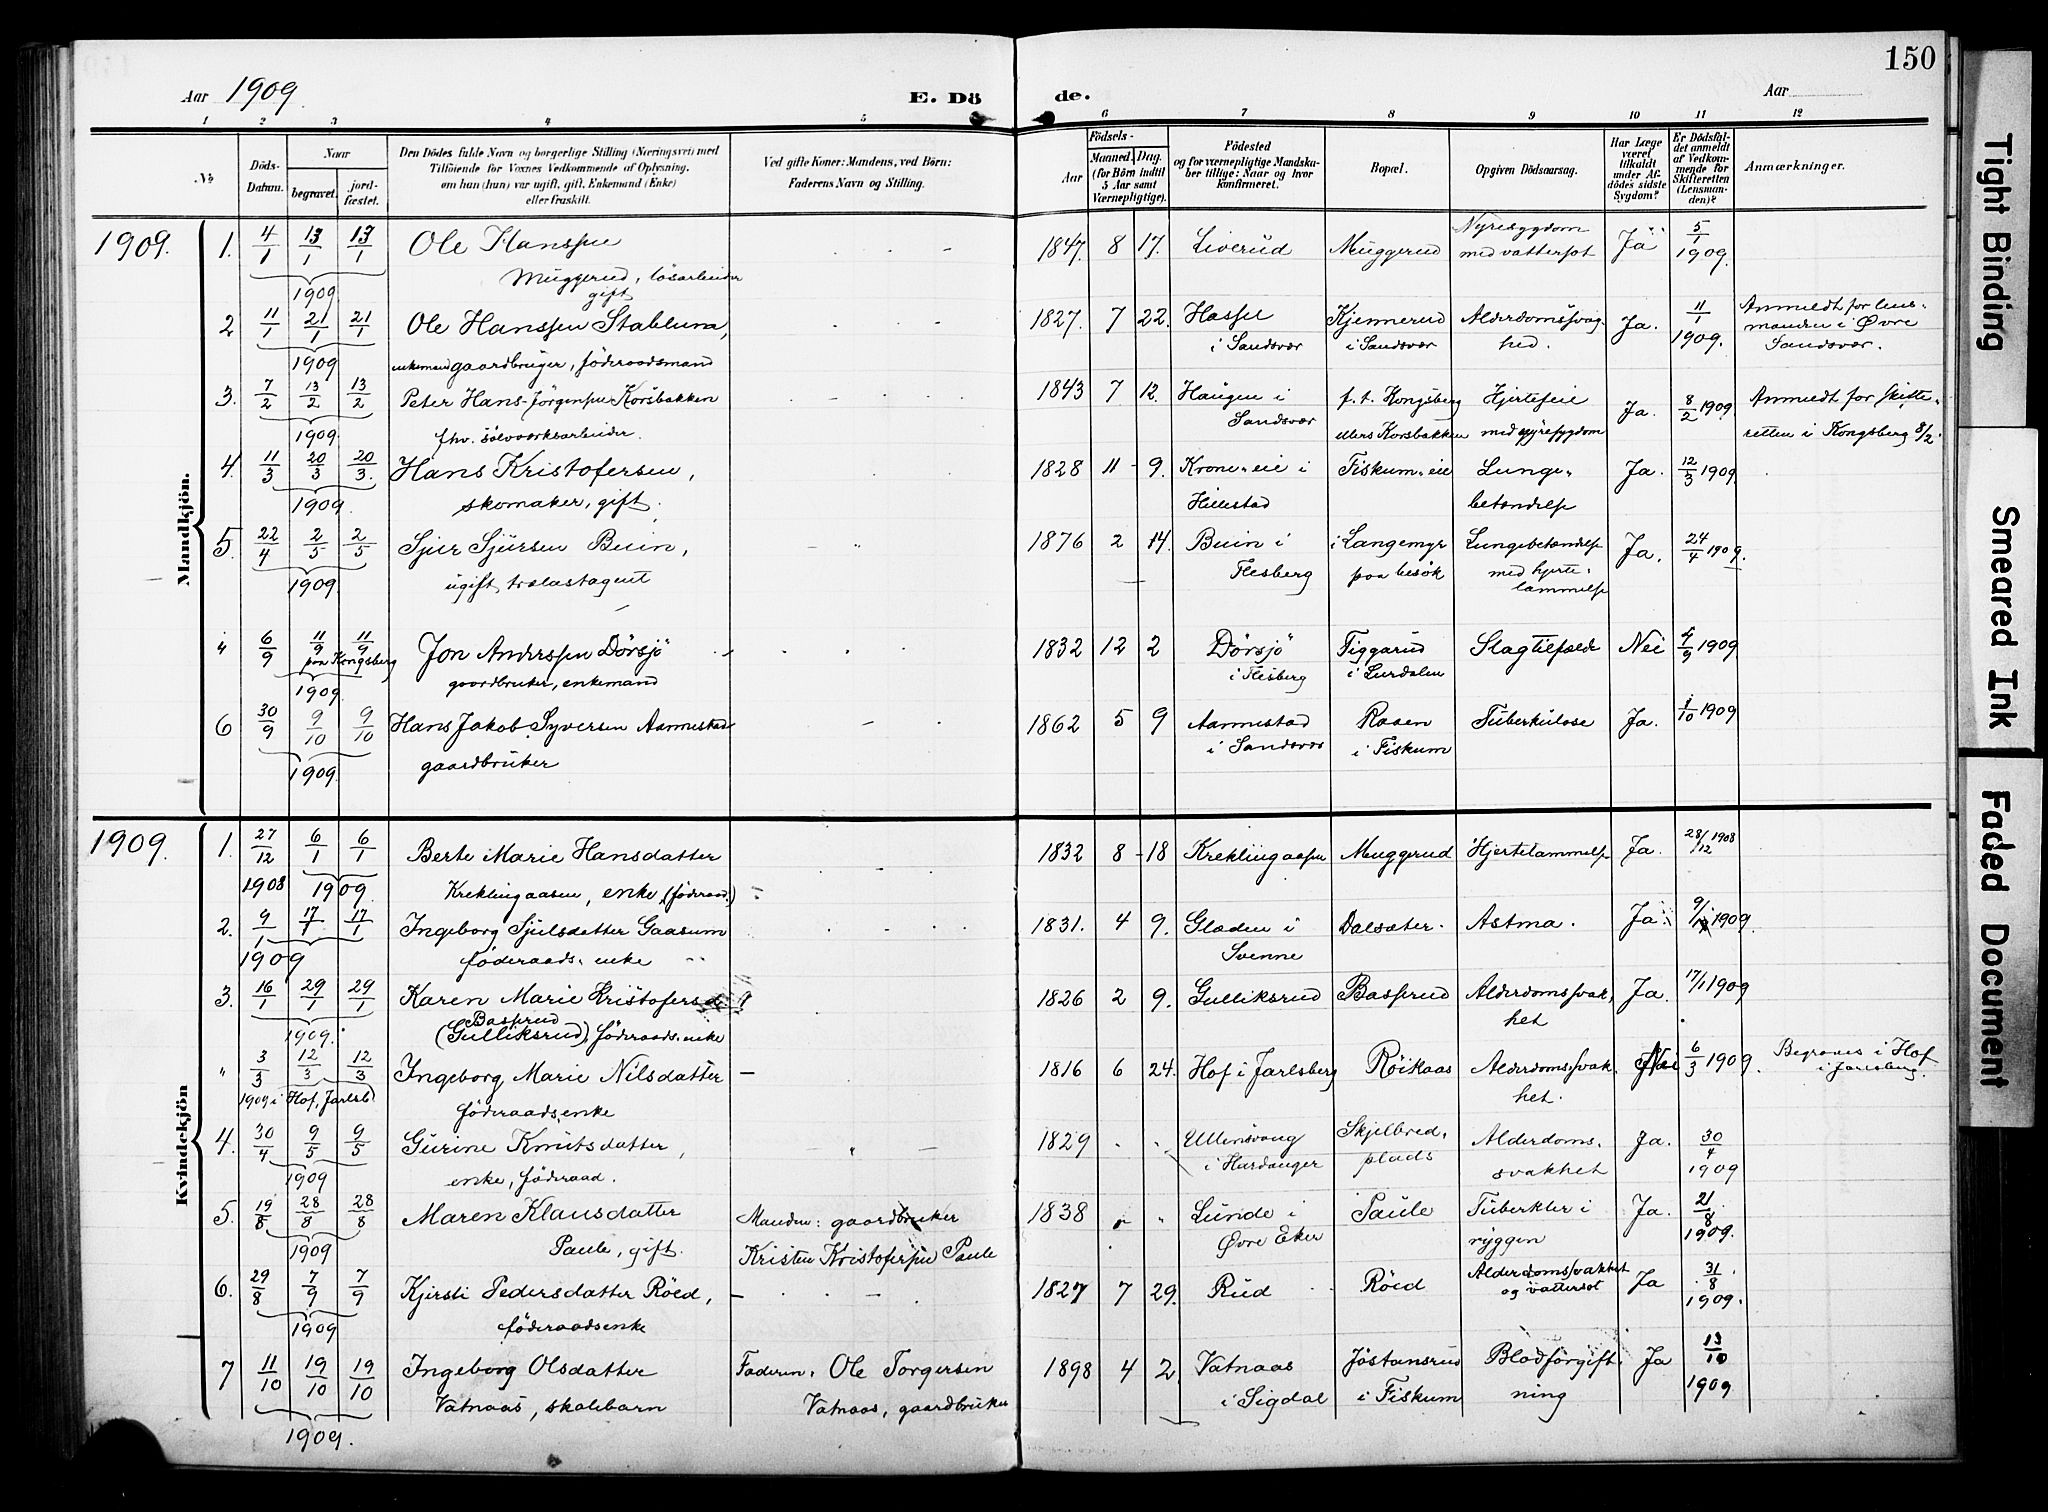 150
Aar 1909.
E. Döde.
Aar
1 2 3 4 5 6 7 8 9 10 11 12
No
Döds-Datum.
Naar
begravet.
jord-fæstet.
Den Dödes fulde Navn og borgerlige Stilling (Næringsvei) med
Tilföiende for Voxnes Vedkommende af Oplysning,
om han (hun) var ugift, gift, Enkemand (Enke)
eller fraskilt.
Ved gifte Koner: Mandens, ved Börn:
Faderens Navn og Stilling.
Födsels-
Aar
Maaned. Dag.
(for Börn indtil
5 Aar samt
Værnepligtige).
Födested
og for værnepligtige Mandska-
ber tillige: Naar og hvor
konfirmeret.
Bopæl.
Opgiven Dödsaarsag.
Har Læge
været
tilkaldt
under Af-
dödes sidste
Sygdom?
Er Dödsfal-
det anmeldt
af Vedkom-
mende for
Skifteretten
(Lensman-
den)?
Anmærkninger.
Mandkjön.
1909. 1. 4/1 13/1 13/1 Ole Hanssen 1847. 8 17. Liverud Muggerud Nyresygdom Ja 5/1
1909 Muggerud, lösarbeider med vattersot 1909.
gift
2 11/1 21/1 21/1 Ole Hanssen Stabluna, 1827. 7 22. Hassel Kjennerud Alderdomssvag- Ja. 11/1 Anmeldt for lens-
1909. enkemand gaardbruger, föderaadsmand i Sandsvær i Sandsvær hed. 1909. manden i Øvre
Sandsvær.
3. 7/2 13/2 13/2 Peter Hans-Jörgensen Korsbakken 1843 7 12. Haugen i f. t. Kongsberg Hjertefeil Ja. 8/2 1909 Anmeldt for Skifte-
1909 fhv. sölvværksarbeider. Sandsvær ellers Korsbakken med nyresygdom retten i Kongsberg 8/2.
4. 11/3 20/3 20/3. Hans Kristofersen, 1828 11 9. Krone-eie i Fiskum-eie Lunge- Ja. 12/3 1909
1909. skomaker, gift. Hillestad betændelse
5. 22/4 2/5 2/5 Sjur Sjursen Buin, 1876 2 14. Buin i i Langemyr Lungebetændelse Ja. 24/4 1909.
1909. ugift, trælastagent Flesberg paa besök med hjerte-
lammelse
" 6/9 11/9 11/9 Jon Anderssen Dörsjö 1832 12 2 Dörsjö Tiggarud Slagtilfælde Nei 4/9 1909
paa Kongsberg
1909. gaardbruker, enkemand i Flesberg i Lurdalen
6 30/9 9/10 9/10 Hans Jakob Syversen Aannestad 1862 5 9 Aannestad Raaen Tuberkulose Ja. 1/10 1909
1909. gaardbruker i Sandsvær i Fiskum
Kvindekjön
1909. 1. 27/12 6/1 6/1 Berte Marie Hansdatter 1832 8 18 Kreklingaasen Muggerud Hjertelammelse Ja. 28/12 1908
1908 1909 Kreklingaasen, enke (föderaad.)
2. 9/1 17/1 17/1 Ingeborg Sjulsdatter Gaasum 1831. 4 9. Gladen i Dalsæter. Astma. Ja. 9/1 1909.
1909 föderaads-enke Svenne
3. 16/1 29/1 29/1 Karen Marie Kristofersd. 1826 2 9. Gulliksrud Basserud Alderdomssvak- Ja. 17/1 1909
Basserud
1909. (Gulliksrud), föderaads-enke het
" 3/3 12/3 12/3 Ingeborg Marie Nilsdatter 1816 6 24. Hof i Jarlsberg Röikaas Alderdomssvak- Nei 6/3 1909. Begraves i Hof
1909 i Hof, Jarlsb. föderaadsenke het. i Jarlsberg.
4. 30/4 9/5 9/5 Gurine Knutsdatter, 1829 Ullensvang Skjelbred- Alderdoms- Ja. 30/4
1909 enke, föderaad. i Hardanger plads svakhet 1909
5. 19/8 28/8 28/8 Maren Klausdatter Manden: gaardbruker 1838 Lunde i Paule Tuberkler i Ja. 21/8
1909 Paule, gift. Kristen Kristofersen Paule Øvre Eker ryggen 1909.
6. 29/8 7/9 7/9 Kjersti Pedersdatter Röed, 1827 7 29. Rud Röed Alderdomssvakhet Ja 31/8
1909 föderaadsenke og vattersot 1909.
7 11/10 19/10 19/10 Ingeborg Olsdatter Faderen: Ole Torgersen 1898 4 2 Vatnaas Jöstansrud Blodforgift- Ja 13/10
1909. Vatnaas, skolebarn Vatnaas, gaardbruker i Sigdal i Fiskum ning 1909
Tight Binding
Smeared Ink
Faded Document